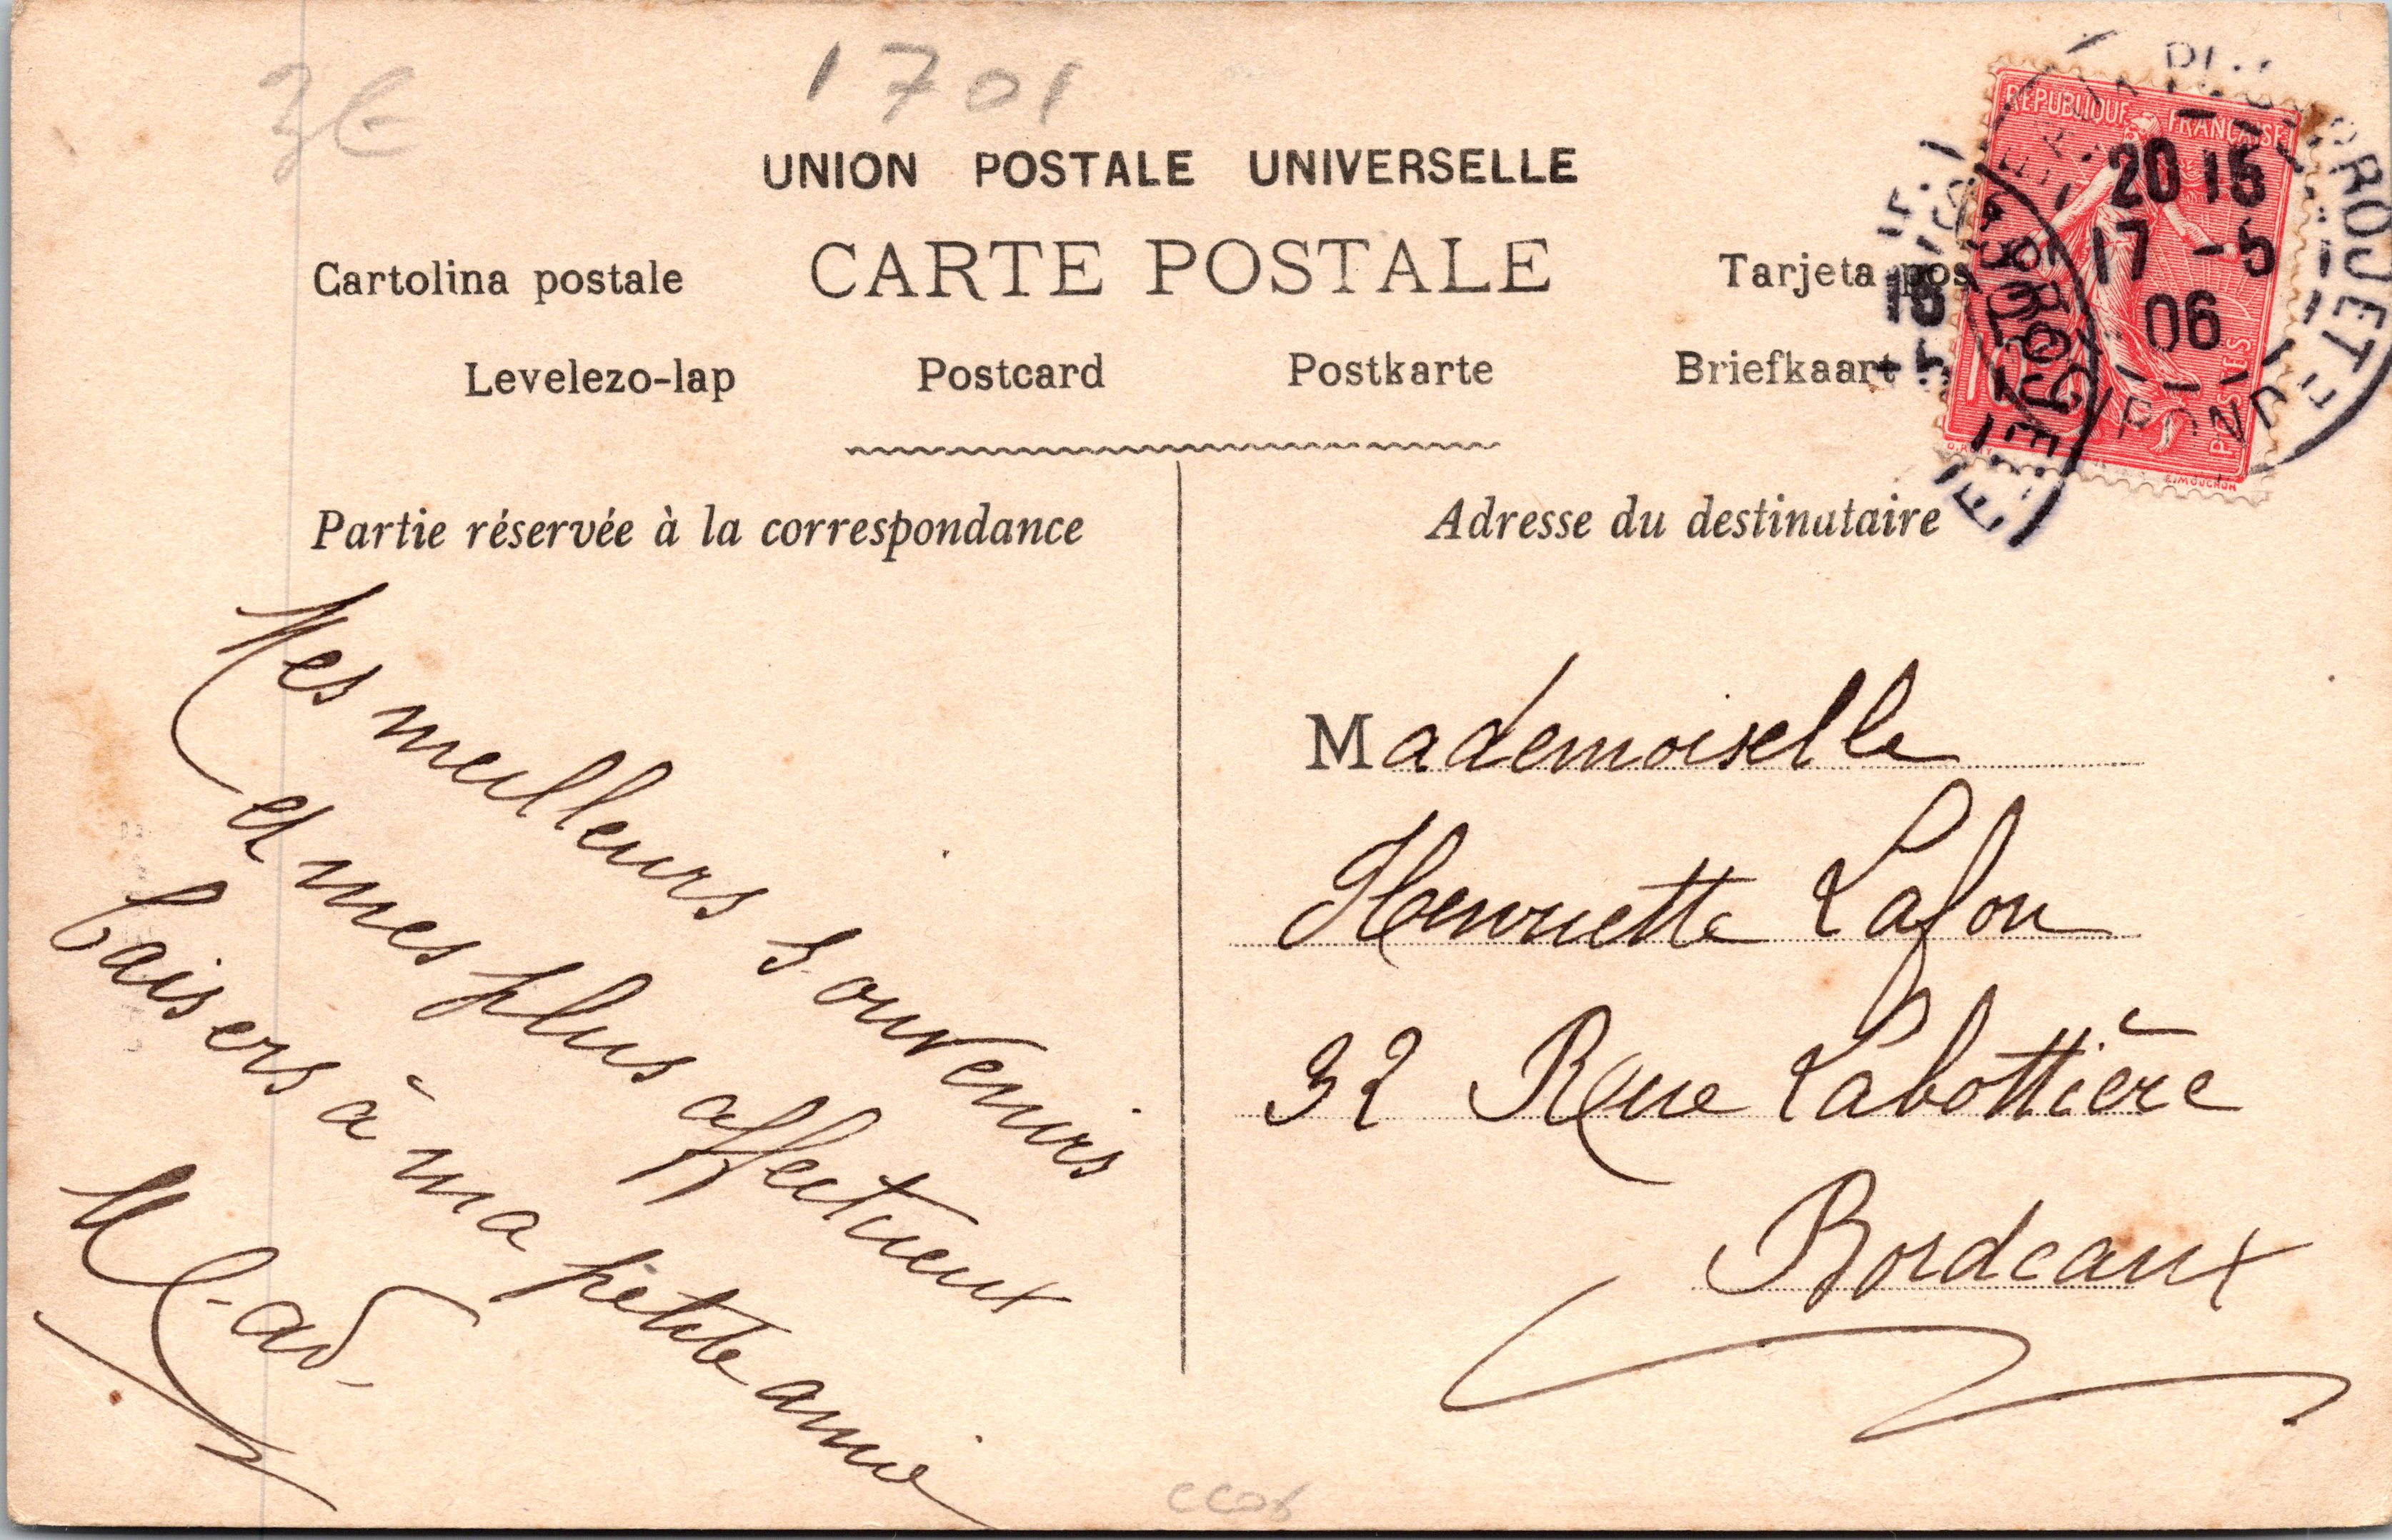 3€
1701
UNION POSTALE UNIVERSELLE
Cartolina postale CARTE POSTALE Tarjeta pos
Levelezo-lap Postcard Postkarte Briefkaart
REPUBLIQUE FRANÇAISE
POSTES
E. MOUCHON
20 15
17 -5
06
Partie réservée à la correspondance
Adresse du destinataire
Mes meilleurs souvenirs
et mes plus affectueux
baisers à ma petite amie
Mademoiselle
Henriette Lafon
32 Rue Labottière
Bordeaux